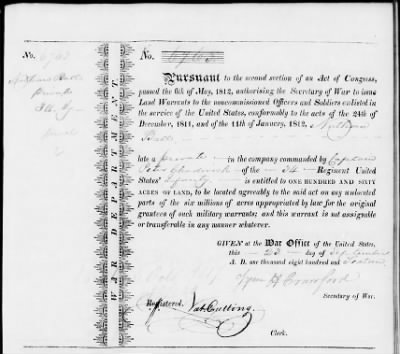 No. 6763
No. 6763
WAR DEPARTMENT.
Pursuant to the second section of an Act of Congress,
passed the 6th of May, 1812, authorising the Secretary of War to issue
Land Warrants to the noncommissioned Officers and Soldiers enlisted in
the service of the United States, conformably to the acts of the 24th of
December, 1811, and of the 11th of January, 1812,
late a private in the company commanded by Captain
of the 34 Regiment United
States' Infantry is entitled to ONE HUNDRED AND SIXTY
ACRES OF LAND, to be located agreeably to the said act on any unlocated
parts of the six millions of acres appropriated by law for the original
grantees of such military warrants; and this warrant is not assignable
or transferable in any manner whatever.
GIVEN at the War Office of the United States,
this 23 day of September
A. D. one thousand eight hundred and fifteen
Wm H Crawford
Secretary of War.
Registered. Nat Cutting
Clerk.